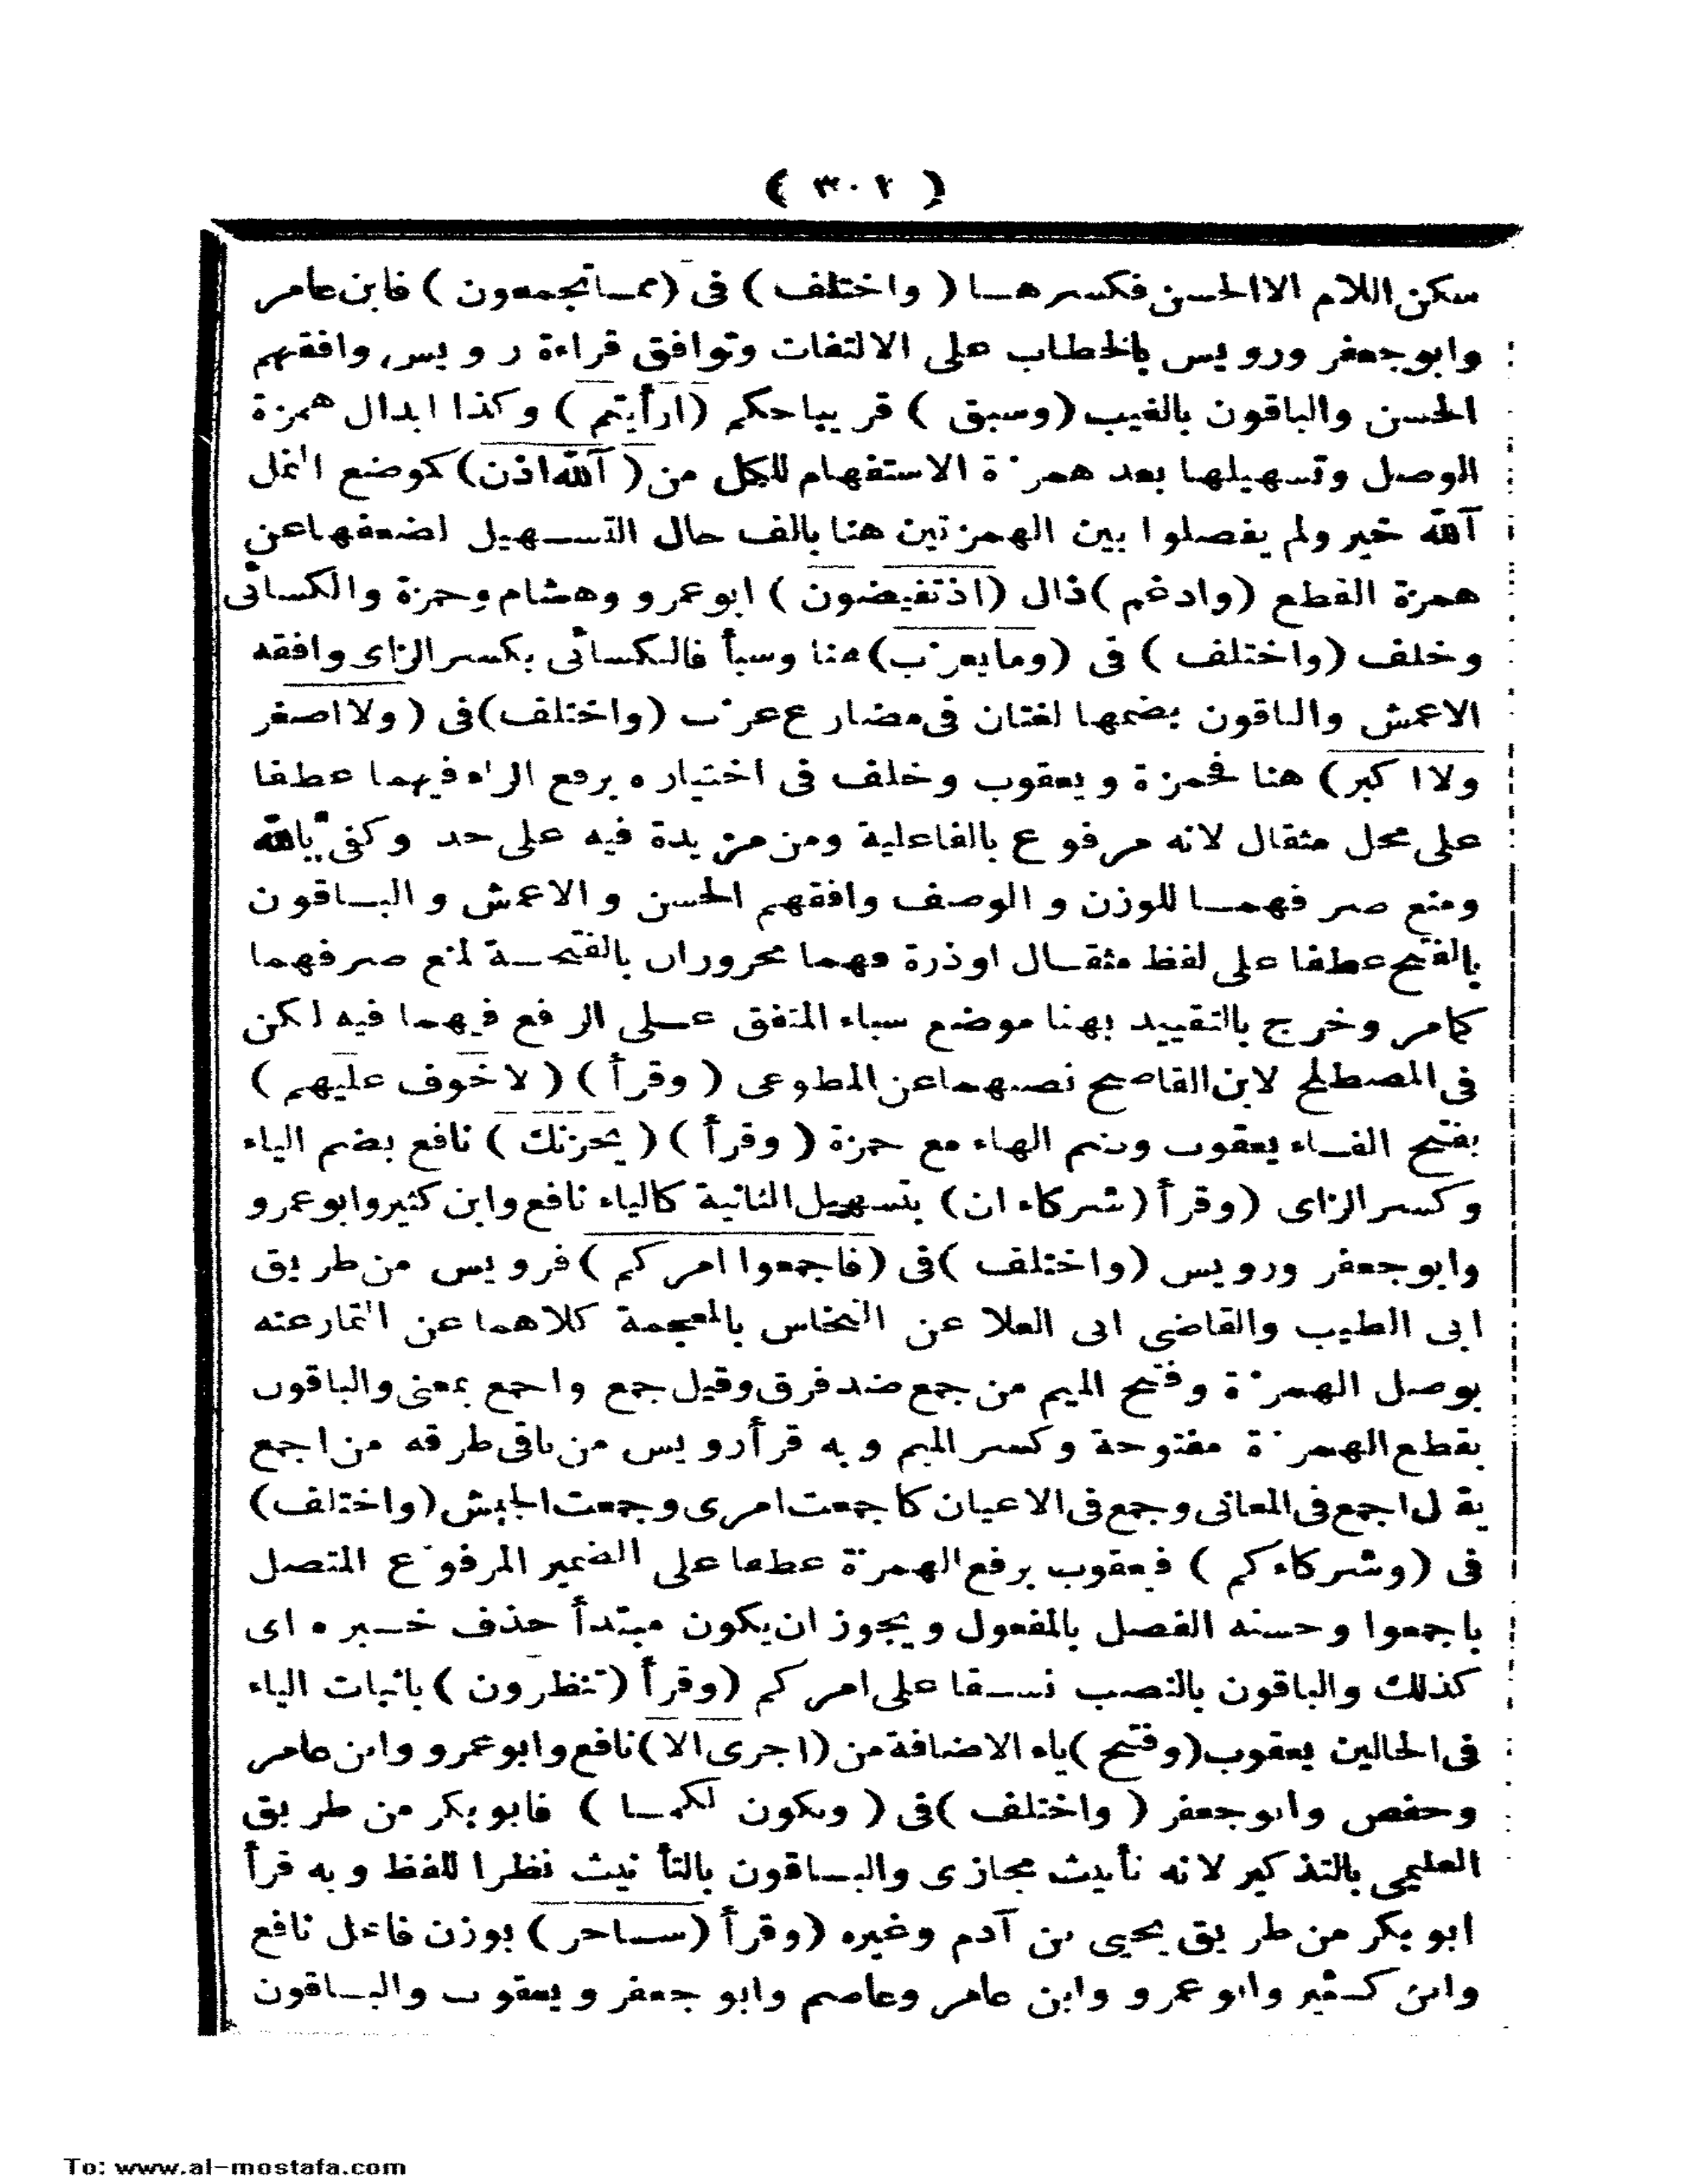 ( ٣٠٢ )
سكن اللام الا الحسن فكسرهـا ( واختلف ) فى ( ممـا تجمعون ) فابن عامر
وابو جعفر ورويس بالخطاب على الالتفات وتوافق قراءة رويس وافقهم
الحسن والباقون بالغيب ( وسبق ) قريبا حكم ( ارأيتم ) وكذا ابدال همزة
الوصل وتسهيلها بعد همزة الاستفهام للكل من ( آلله اذن ) كوضع النمل
آلله خير ولم يفصلوا بين الهمزتين هنا بالف حال التسـهيل لضعفها عن
همزة القطع ( وادغم ) ذال ( اذ تفيضون ) ابو عمرو وهشام وحمزة والكسائى
وخلف ( واختلف ) فى ( وما يعزب ) هنا وسبأ فالكسائى بكسر الزاى وافقه
الاعمش والباقون بضمها لغتان فى مضارع عزب ( واختلف ) فى ( ولا اصغر
ولا اكبر ) هنا فحمزة ويعقوب وخلف فى اختياره برفع الراء فيهما عطفا
على محل مثقال لانه مرفوع بالفاعلية ومن مزيدة فيه على حد وكفى بالله
ومنع صرفهمـا للوزن والوصف وافقهم الحسن والاعمش والبـاقون
بالفتح عطفا على لفظ مثقـال او ذرة فهما مجروران بالفتحـة لمنع صرفهما
كمامر وخرج بالتقييد بهنا موضع سباء المتفق عـلى الرفع فيهما فيه لكن
فى المصطلح لابن القاصح نصبهما عن المطوعى ( وقرأ ) ( لا خوف عليهم )
بفتح الفـاء يعقوب وضم الهاء مع حمزة ( وقرأ ) ( يحزنك ) نافع بضم الياء
وكسر الزاى ( وقرأ ( شركاء ان ) بتسهيل الثانية كالياء نافع وابن كثير وابو عمرو
وابو جعفر ورويس ( واختلف ) فى ( فاجمعوا امركم ) فرويس من طريق
ابى الطيب والقاضى ابى العلا عن النخاس بالمعجمة كلاهما عن التمار عنه
بوصل الهمزة وفتح الميم من جمع ضد فرق وقيل جمع واجمع بمعنى والباقون
بقطع الهمزة مفتوحة وكسر الميم وبه قرأ رويس من باقى طرقه من اجمع
يقال اجمع فى المعانى وجمع فى الاعيان كاجمعت امرى وجمعت الجيش ( واختلف )
فى ( وشركاءكم ) فيعقوب برفع الهمزة عطفا على الضمير المرفوع المتصل
باجمعوا وحسنه الفصل بالمفعول ويجوز ان يكون مبتدأ حذف خـبره اى
كذلك والباقون بالنصب نسـقا على امركم ( وقرأ ( تنظرون ) باثبات الياء
فى الحالين يعقوب ( وفتح ) ياء الاضافة من ( اجرى الا ) نافع وابو عمرو وابن عامر
وحفص وابو جعفر ( واختلف ) فى ( وتكون لكمـا ) فابو بكر من طريق
العليمى بالتذكير لانه تأنيث مجازى والبـاقون بالتأنيث نظرا للفظ وبه قرأ
ابو بكر من طريق يحيى بن آدم وغيره ( وقرأ ( سـاحر ) بوزن فاعل نافع
وابن كـثير وابو عمرو وابن عامر وعاصم وابو جعفر ويعقوب والبـاقون
To: www.al-mostafa.com